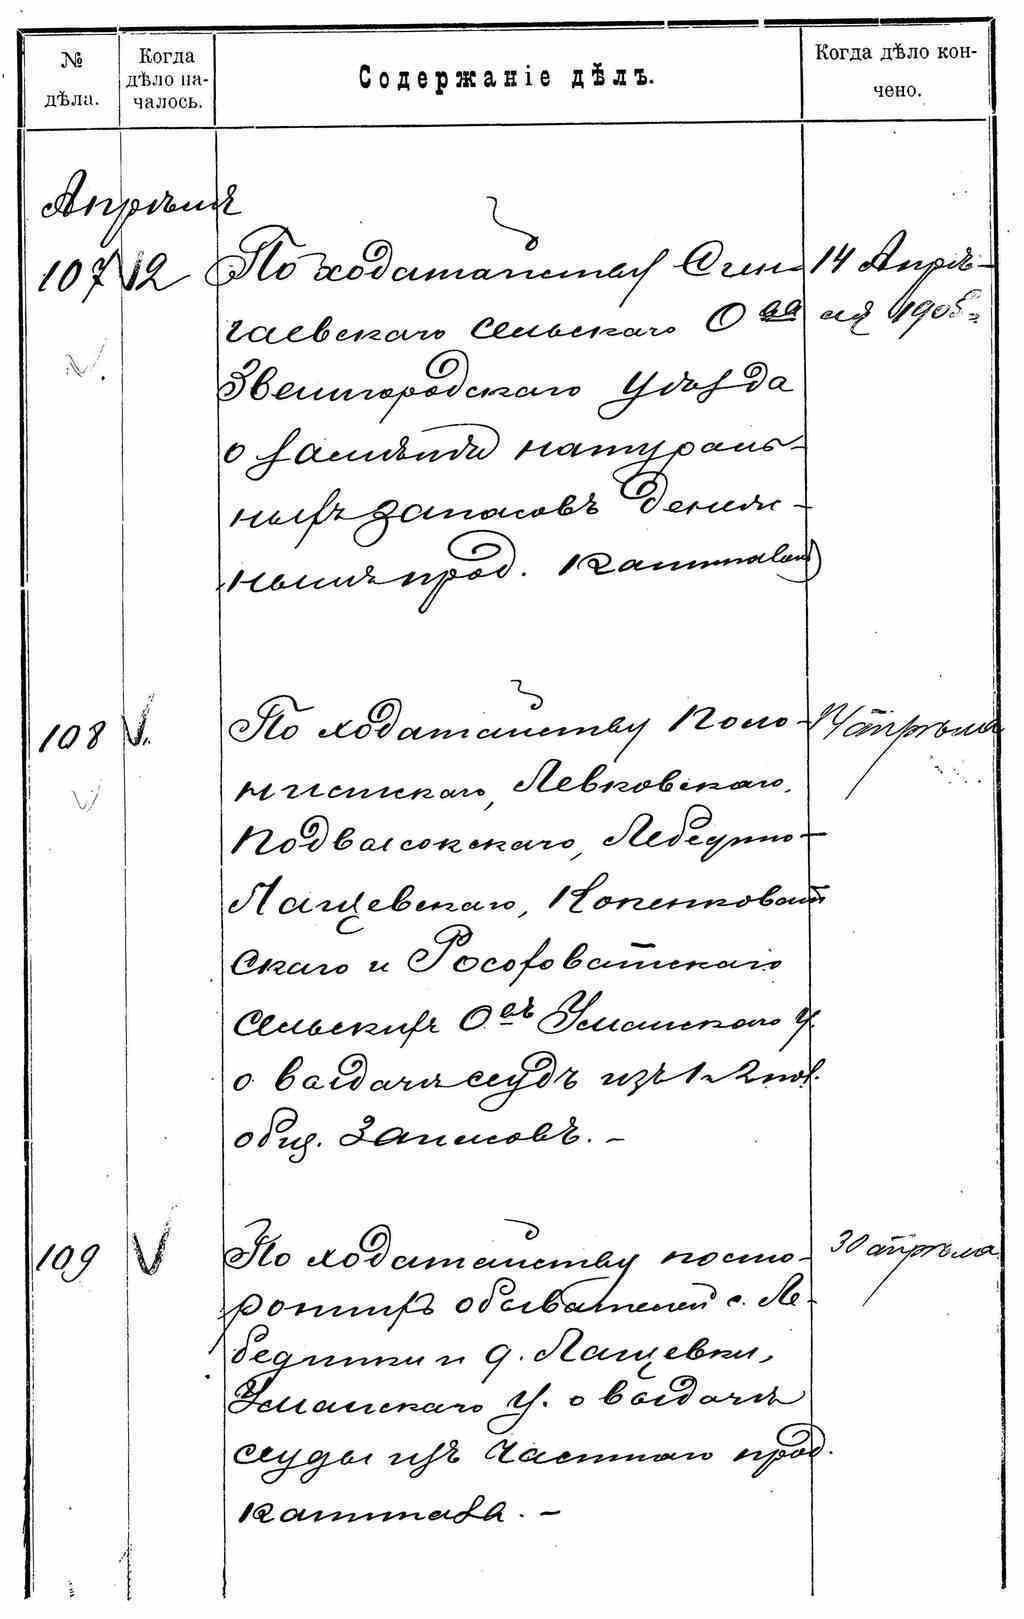 № дѣла.
Когда дѣло началось.
Содержаніе дѣлъ.
Когда дѣло кончено.
Апрѣля
107 12 По ходатайству 14 Апрѣ-
гаевскаго сельскаго О ва ля 1905
Звенигородскаго Уѣзда
о замѣнѣ натураль-
ныхъ запасовъ денеж-
нымъ прод. капиталом
108 По ходатайству Коло- 14 апрѣля
нистскаго, Левковскаго,
Подвысокскаго, Лебедино-
Лащевскаго, Копенковат
скаго и Россоховатскаго
сельскихъ О въ Уманскаго у.
о выдачѣ ссудъ изъ 1 и 2 пол.
общ. запасовъ. -
109 По ходатайству посто- 30 апрѣля
роннихъ обывателей с. Ле-
бединки и д. Лащевки,
Уманскаго у. о выдачѣ
ссуды изъ частнаго прод.
капитала. -